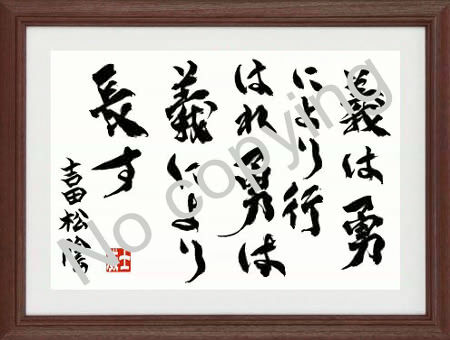 義は勇
により行
はれ勇は
義により
長す
吉田松陰
No copying